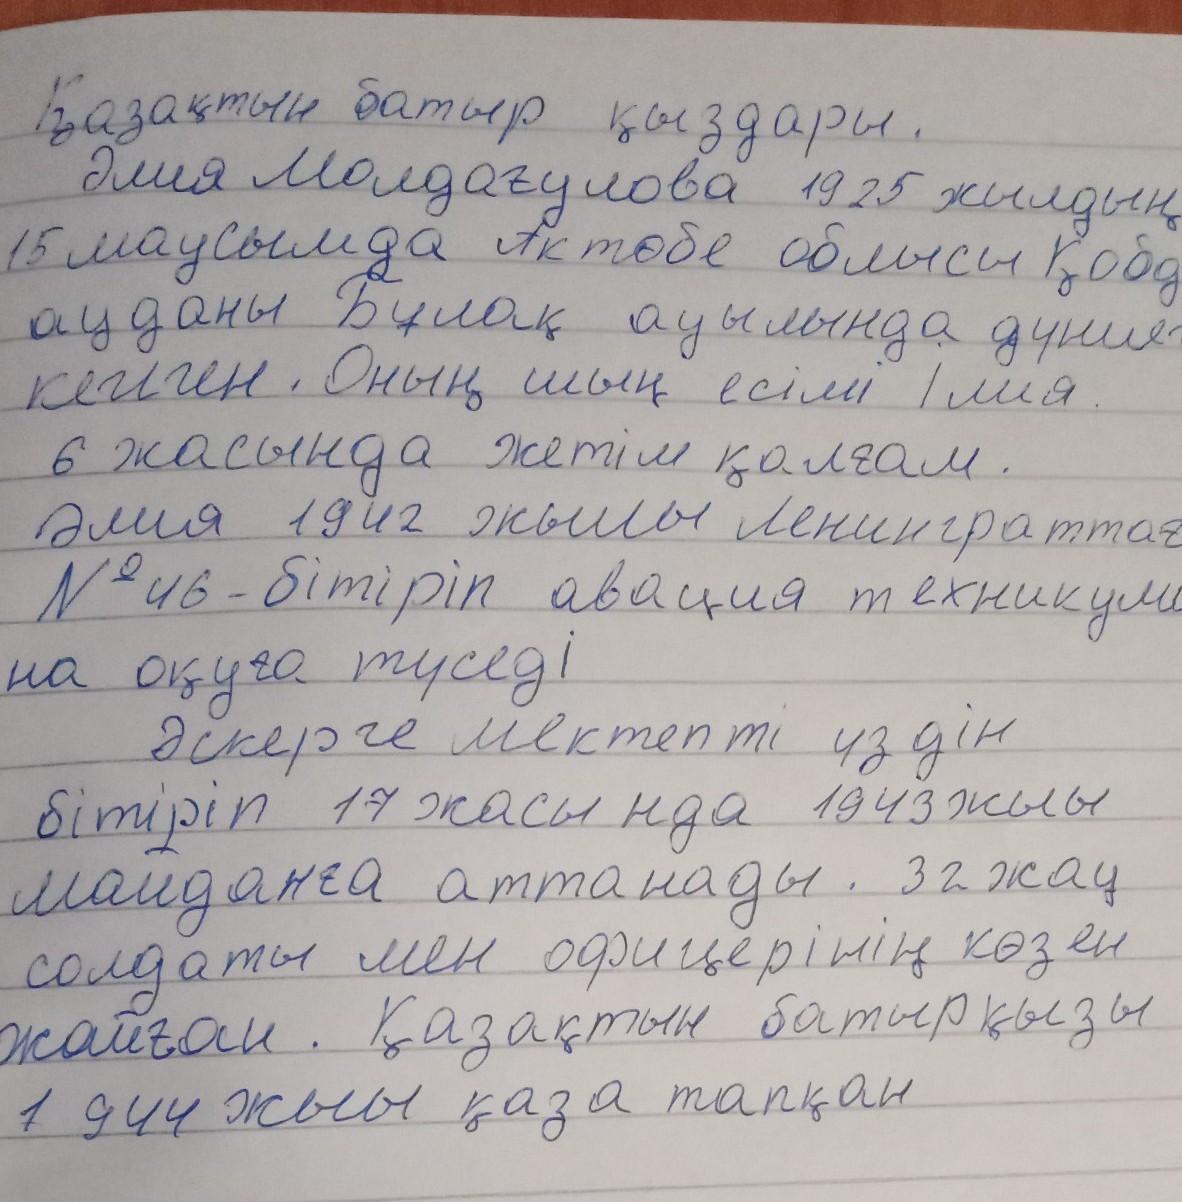 Қазақтын батыр қыздары.
Әлия Молдағулова 1925 жылдың
15 маусымда Ақтөбе облысы Қобд
ауданы Бұлақ ауылында дүние
келген. Оның шың есімі Ілия.
6 жасында жетім қалғам.
Әлия 1942 жылы Ленинграттағ
№ 46-бітіріп авация техникумы
на оқуға түседі
Әскерге мектепті үздін
бітіріп 17 жасында 1943 жыы
майданға аттанады. 32 жау
солдаты мен офицерінің көзен
жайған. Қазақтын батырқызы
1944 жыы қаза тапқан